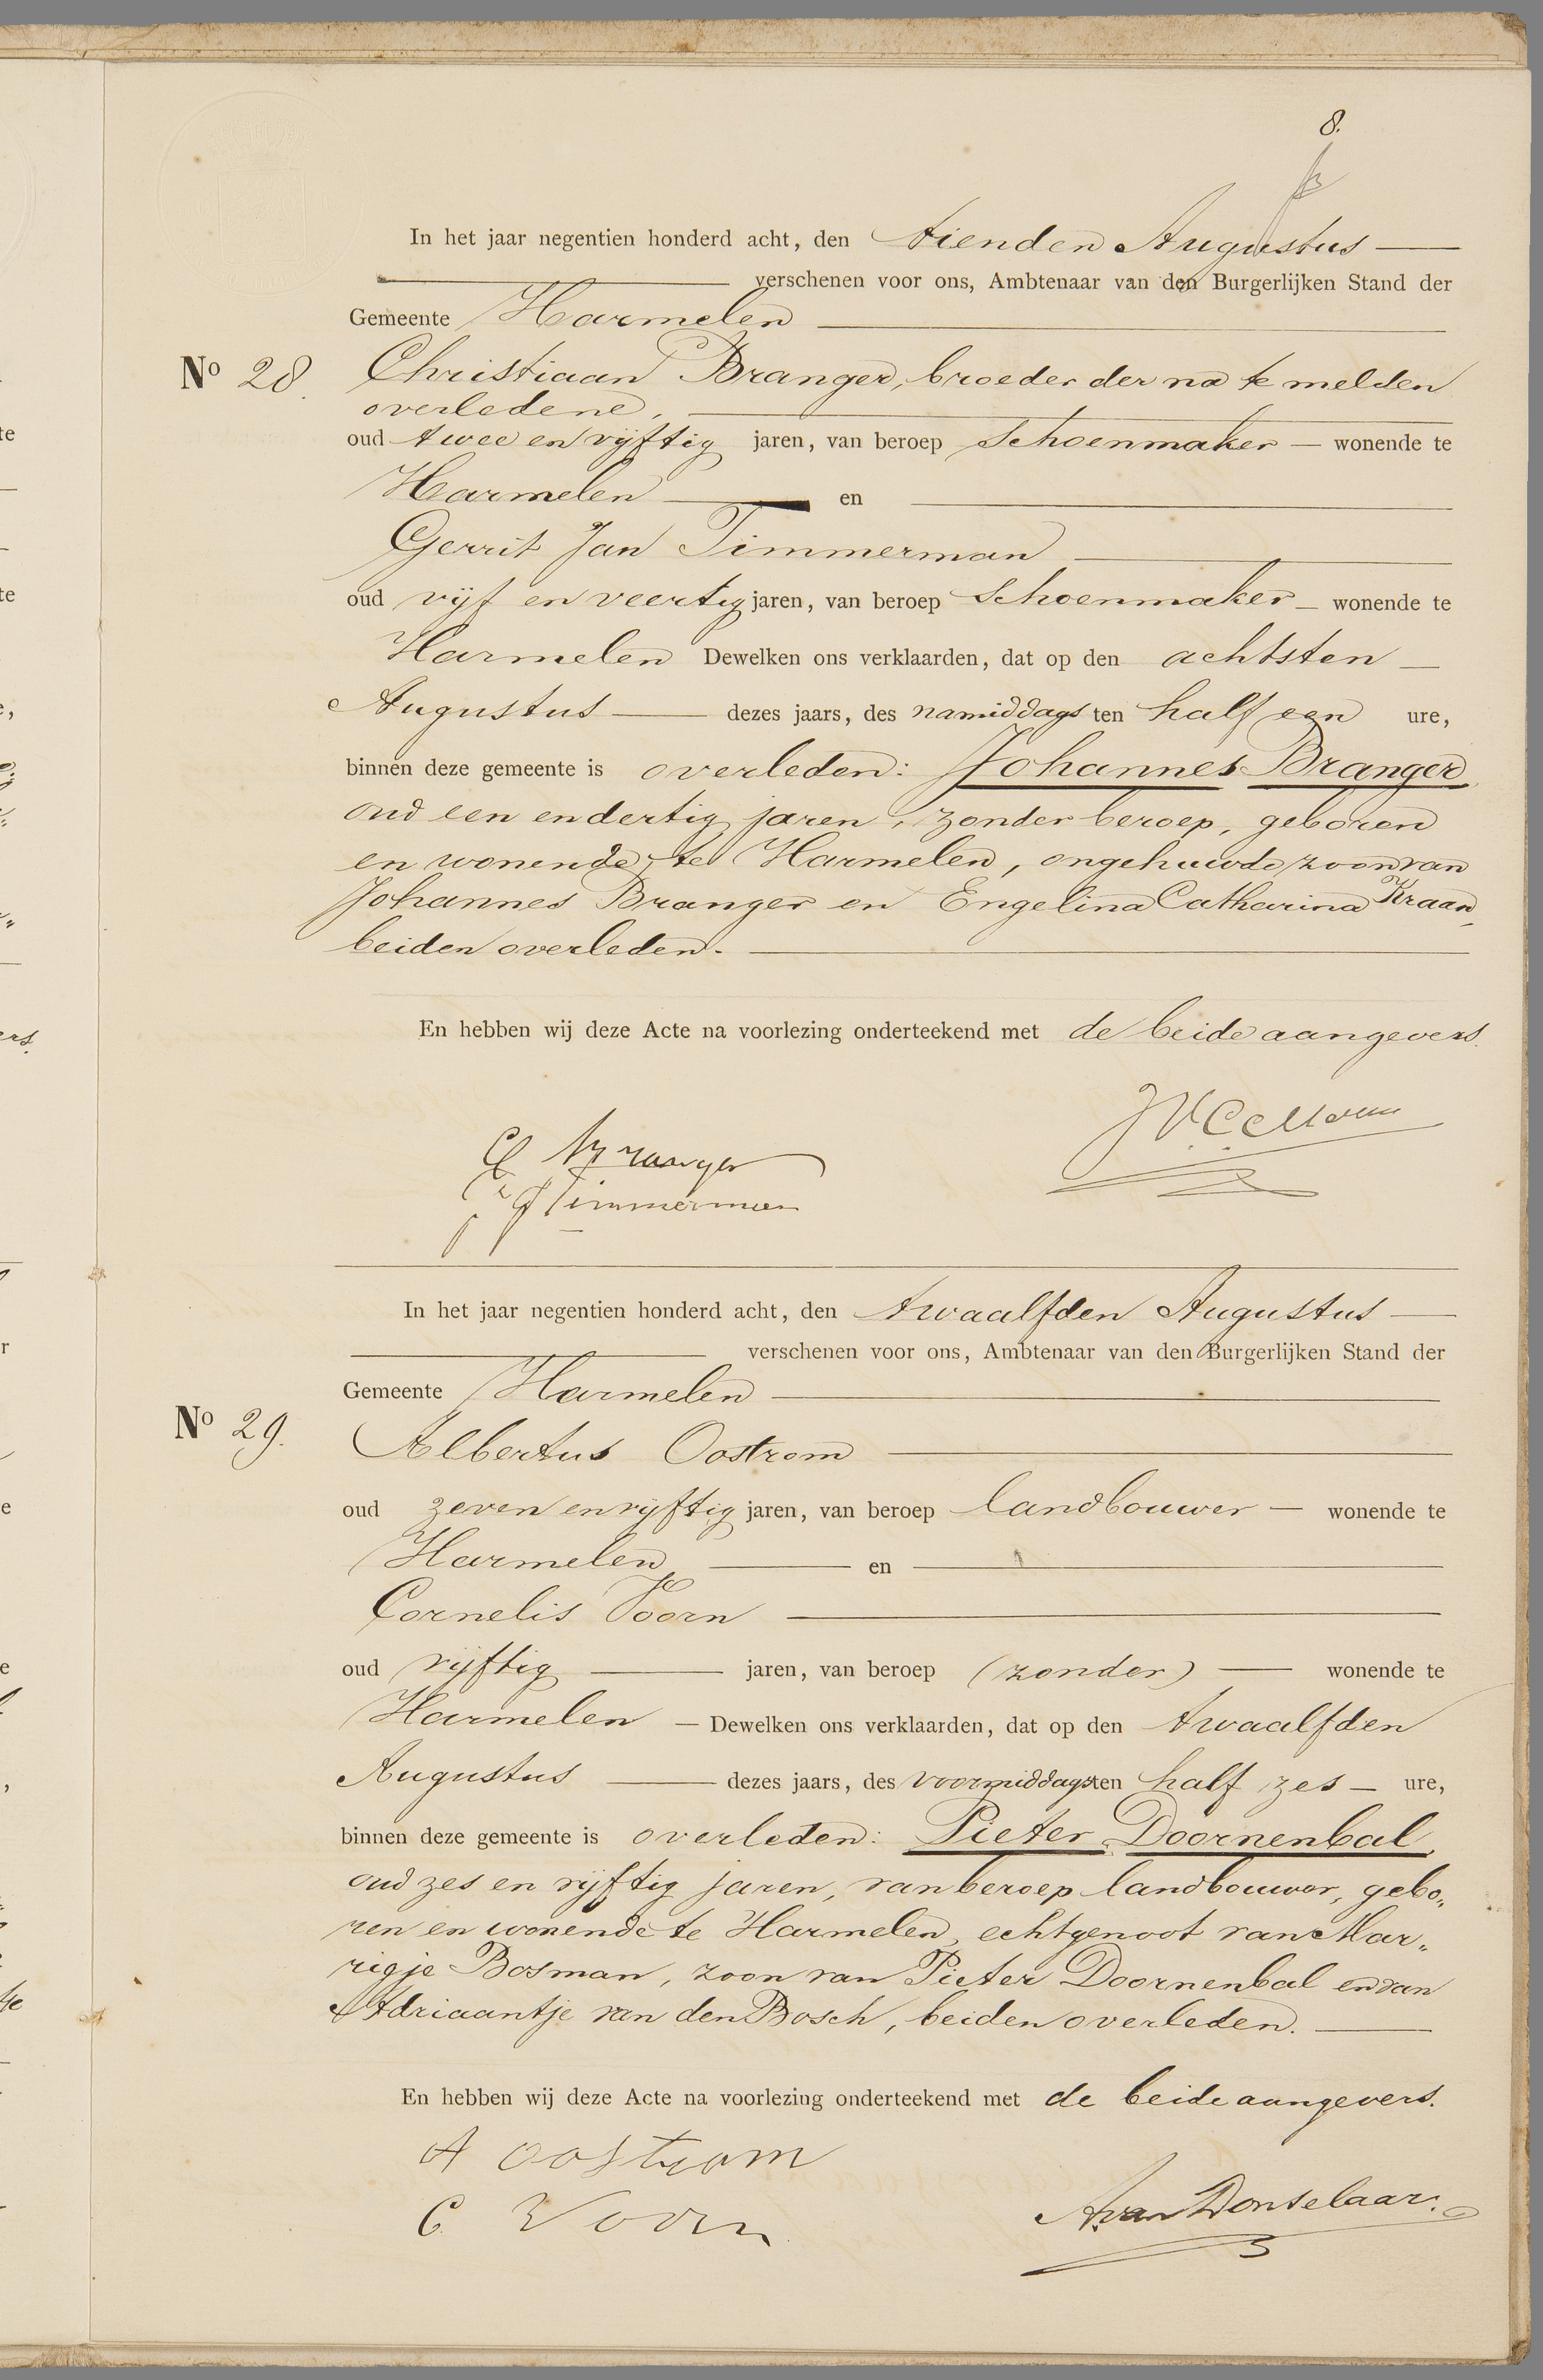 8.
In het jaar negentien honderd acht, den tienden Augustus
verschenen voor ons, Ambtenaar van den Burgerlijken Stand der
Gemeente Harmelen
No 28. Christiaan Branger, broeder der na te melden
overledene,
oud twee en vijftig jaren, van beroep Schoenmaker wonende te
Harmelen en
Gerrit Jan Timmerman
oud vijf en veertig jaren, van beroep Schoenmaker wonende te
Harmelen Dewelken ons verklaarden, dat op den achtsten
Augustus dezes jaars, des namiddags ten half een ure,
binnen deze gemeente is overleden: Johannes Branger
oud een en dertig jaren, zonder beroep, geboren
en wonende te Harmelen, ongehuwde zoon van
Johannes Branger en Engelina Catharina Kraan,
beiden overleden.
En hebben wij deze Acte na voorlezing onderteekend met de beide aangevers.
C Branger
G J Timmerman
In het jaar negentien honderd acht, den twaalfden Augustus
verschenen voor ons, Ambtenaar van den Burgerlijken Stand der
Gemeente Harmelen
No 29. Albertus Oostrom
oud zeven en vijftig jaren, van beroep landbouwer wonende te
Harmelen en
Cornelis Voorn
oud vijftig jaren, van beroep (zonder) wonende te
Harmelen Dewelken ons verklaarden, dat op den twaalfden
Augustus dezes jaars, des voormiddags ten half zes ure,
binnen deze gemeente is overleden: Pieter Doornenbal,
oud zes en vijftig jaren, van beroep landbouwer, gebo„
ren en wonende te Harmelen, echtgenoot van Mar„
rigje Bosman, zoon van Pieter Doornenbal en van
Adriaantje van den Bosch, beiden overleden.
En hebben wij deze Acte na voorlezing onderteekend met de beide aangevers.
A Oostrom
C Voorn
A. van Donselaar.